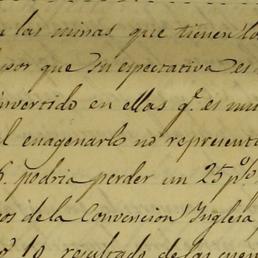 las minas que tienen lo
por que su espectativa es
nvertido en ellas q.e es mu
l enagenarlo no represent
podria perder un 25 p%
os de la Convencion Inglesa
10 resultado de las cuen